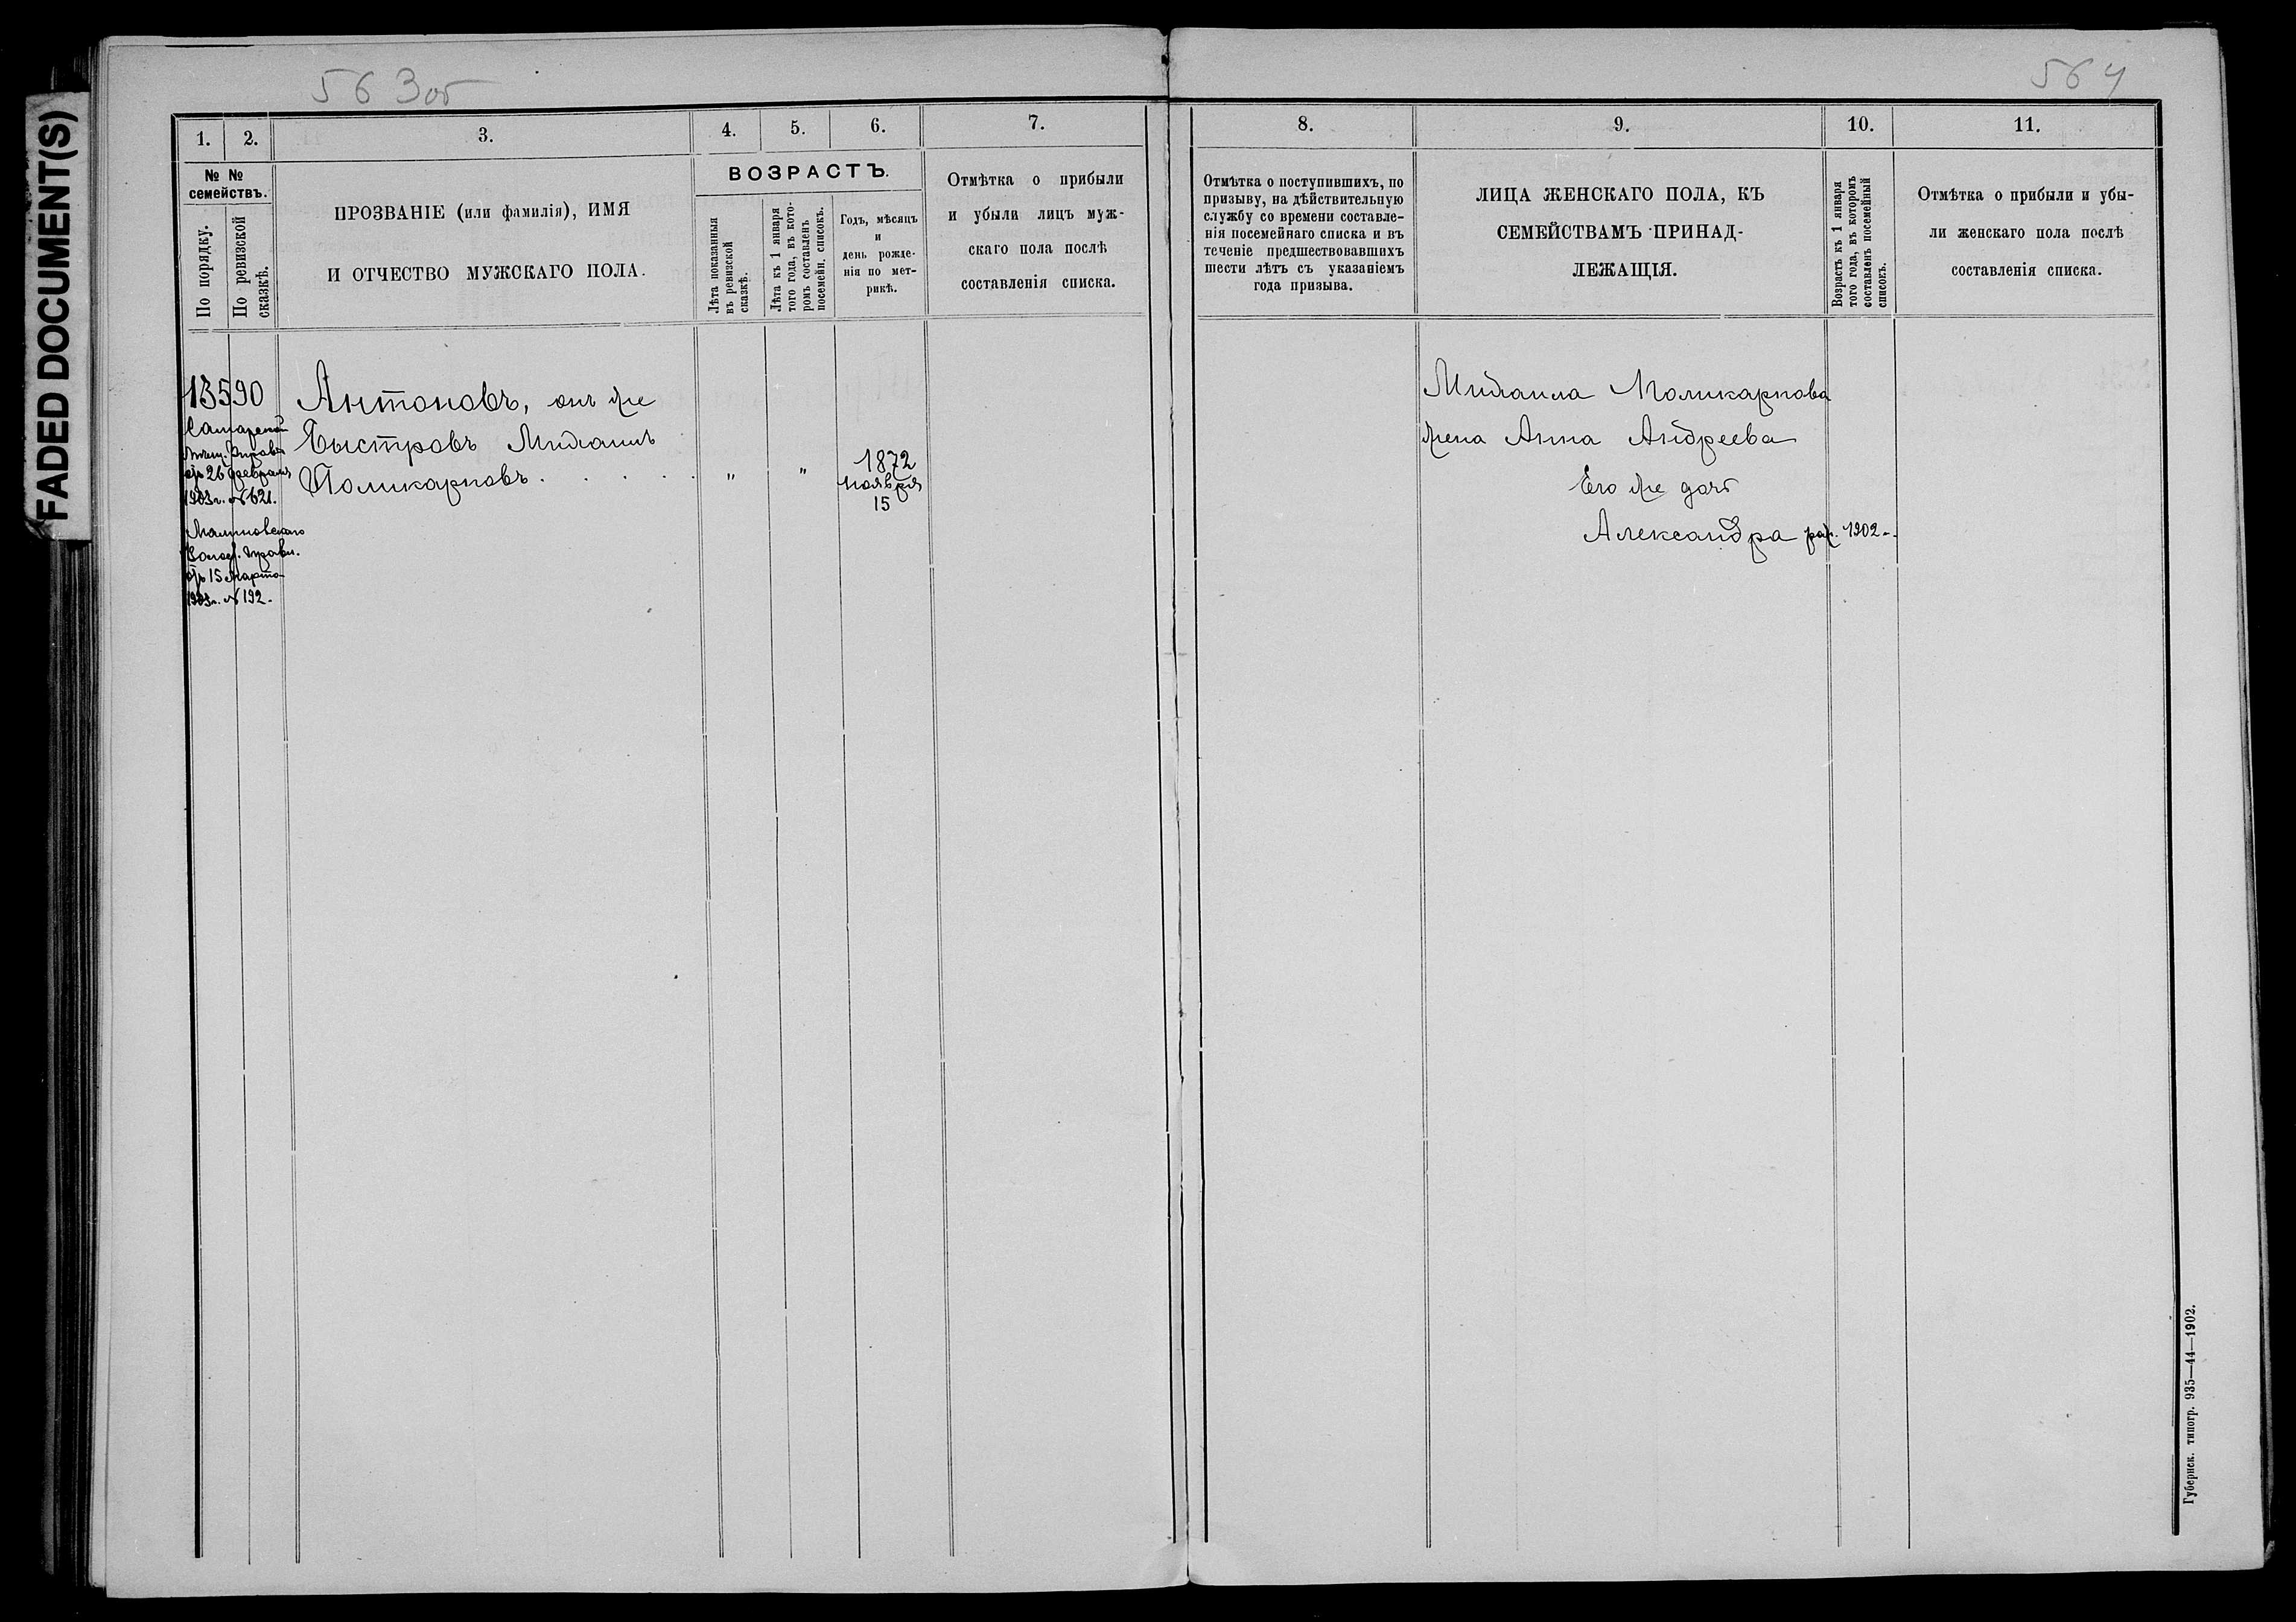 FADED DOCUMENT(S)
563об
1. 2. 3. 4. 5. 6. 7.
№ № семействъ.
По порядку.
По ревизской сказкѣ.
ПРОЗВАНІЕ (или фамилія), ИМЯ
И ОТЧЕСТВО МУЖСКАГО ПОЛА.
ВОЗРАСТЪ.
Лѣта показанныя
въ ревизской
сказкѣ.
Лѣта къ 1 января
того года, въ кото-
ромъ составленъ
посемейн. списокъ.
Годъ, мѣсяцъ
и
день рожде-
нія по мет-
рикѣ.
Отмѣтка о прибыли
и убыли лицъ муж-
скаго пола послѣ
составленія списка.
13590
Самарской
Мѣщ. Управы
отъ 26 февраля
1903 г. № 621.
Волос. Правл.
отъ 15 марта
1903 г. № 192.
Антоновъ, онъ же
Быстровъ Михаилъ
Поликарповъ . . . . . „ „
1872
ноября
15
564
8. 9. 10. 11.
Отмѣтка о поступившихъ, по
призыву, на дѣйствительную
службу со времени составле-
нія посемейнаго списка и въ
теченіе предшествовавшихъ
шести лѣтъ съ указаніемъ
года призыва.
ЛИЦА ЖЕНСКАГО ПОЛА, КЪ
СЕМЕЙСТВАМЪ ПРИНАД-
ЛЕЖАЩІЯ.
Возрастъ къ 1 января
того года, въ которомъ
составленъ посемейный
списокъ.
Отмѣтка о прибыли и убы-
ли женскаго пола послѣ
составленія списка.
Михаила Поликарпова
жена Анна Андреева
Его же дочь
Александра род. 1902 г.
Губернск. типогр. 935—44—1902.